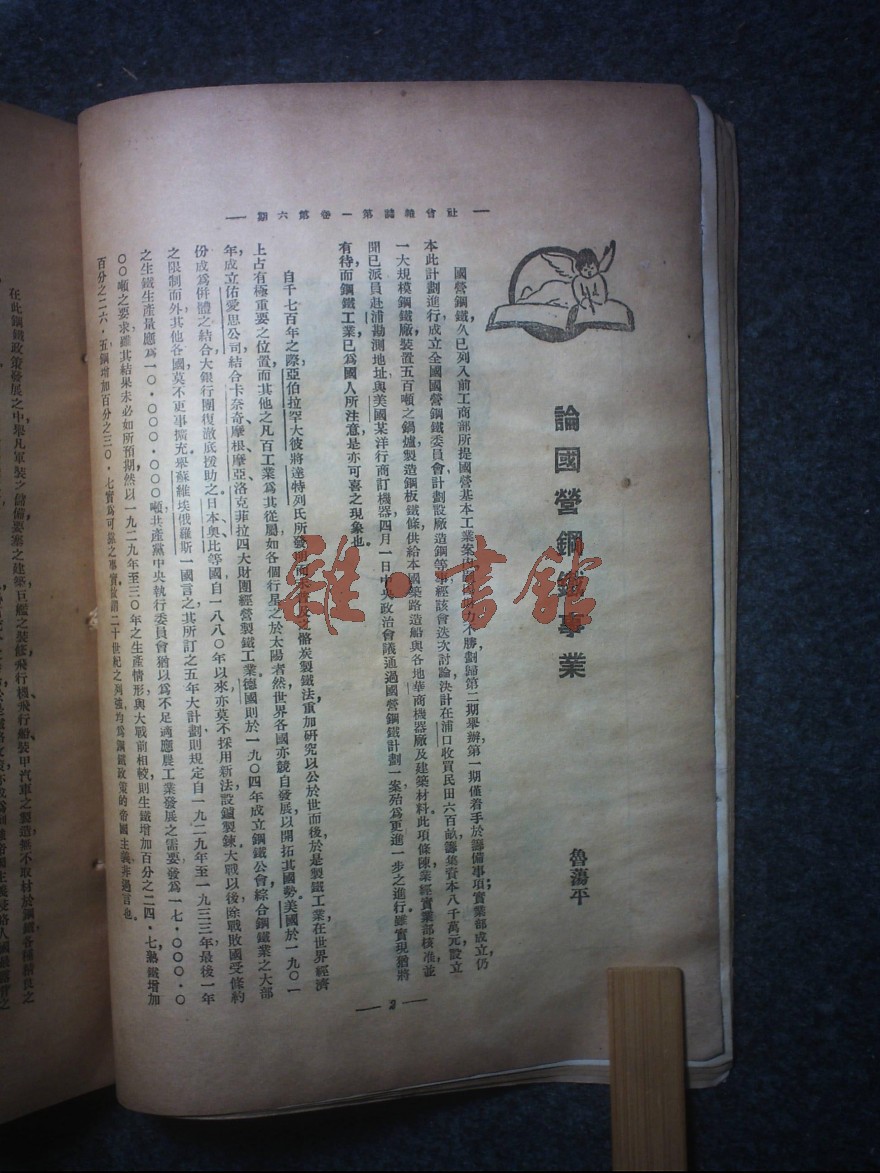 社會雜誌第一卷第六期
論國營鋼鐵事業
魯蕩平
國營鋼鐵,久已列入前工商部所提國營基本工業案內,劃歸第二期舉辦,第一期僅着手於籌備事項;實業部成立,仍
本此計劃進行,成立全國國營鋼鐵委員會,計劃設廠造鋼等事,經該會迭次討論,決計在浦口收買民田六百畝,籌集資本八千萬元,設立
一大規模鋼鐵廠,裝置五百噸之鍋爐,製造鋼板鐵條,供給本國築路造船與各地華商機器廠及建築材料,此項條陳,業經實業部核准,並
聞已派員赴浦勘測地址,與美國某洋行商訂機器,四月一日中央政治會議通過國營鋼鐵計劃一案,殆爲更進一步之進行,雖實現猶將
有待,而鋼鐵工業已爲國人所注意,是亦可喜之現象也。
自千七百年之際,亞伯拉罕大彼將達特列氏所發明骸炭製鐵法,重加研究,以公於世,而後於是製鐵工業在世界經濟
上占有極重要之位置,而其他之凡百工業爲其從屬,如各個行星之於太陽者然,世界各國,亦競自發展,以開拓其國勢,美國於一九〇一
年,成立佑愛思公司,結合卡奈奇、摩根、摩亞、洛克菲拉四大財團,經營製鐵工業,德國則於一九〇四年成立鋼鐵公會,綜合鋼鐵業之大部
份,成爲併體之結合,大銀行團復澈底援助之,日本、奧、比等國,自一八八〇年以來,亦莫不採用新法,設鑪製鍊,大戰以後,除戰敗國受條約
之限制而外,其他各國,莫不更事擴充,舉蘇維埃俄羅斯一國言之,其所訂之五年大計劃,則規定自一九二九年至一九三三年,最後一年
之生鐵生產量應爲一〇・〇〇〇・〇〇〇噸,共產黨中央執行委員會猶以爲不足適應農工業發展之需要,發爲一七・〇〇〇・〇
〇〇噸之要求,雖其結果未必如所預期,然以一九二九年至三〇年之生產情形,與大戰前相較,則生鐵增加百分之二四・七,熟鐵增加
百分之二六・五,鋼增加百分之三〇・七,實爲可驚之事實,故謂二十世紀之列強,均爲鋼鐵政策的帝國主義,非過言也。
在此鋼鐵政策發展之中,舉凡軍裝之儲備,要塞之建築,巨艦之裝修,飛行機、飛行船、裝甲汽車之製造,無不取材於鋼鐵,各種精良之
3
雜・書館